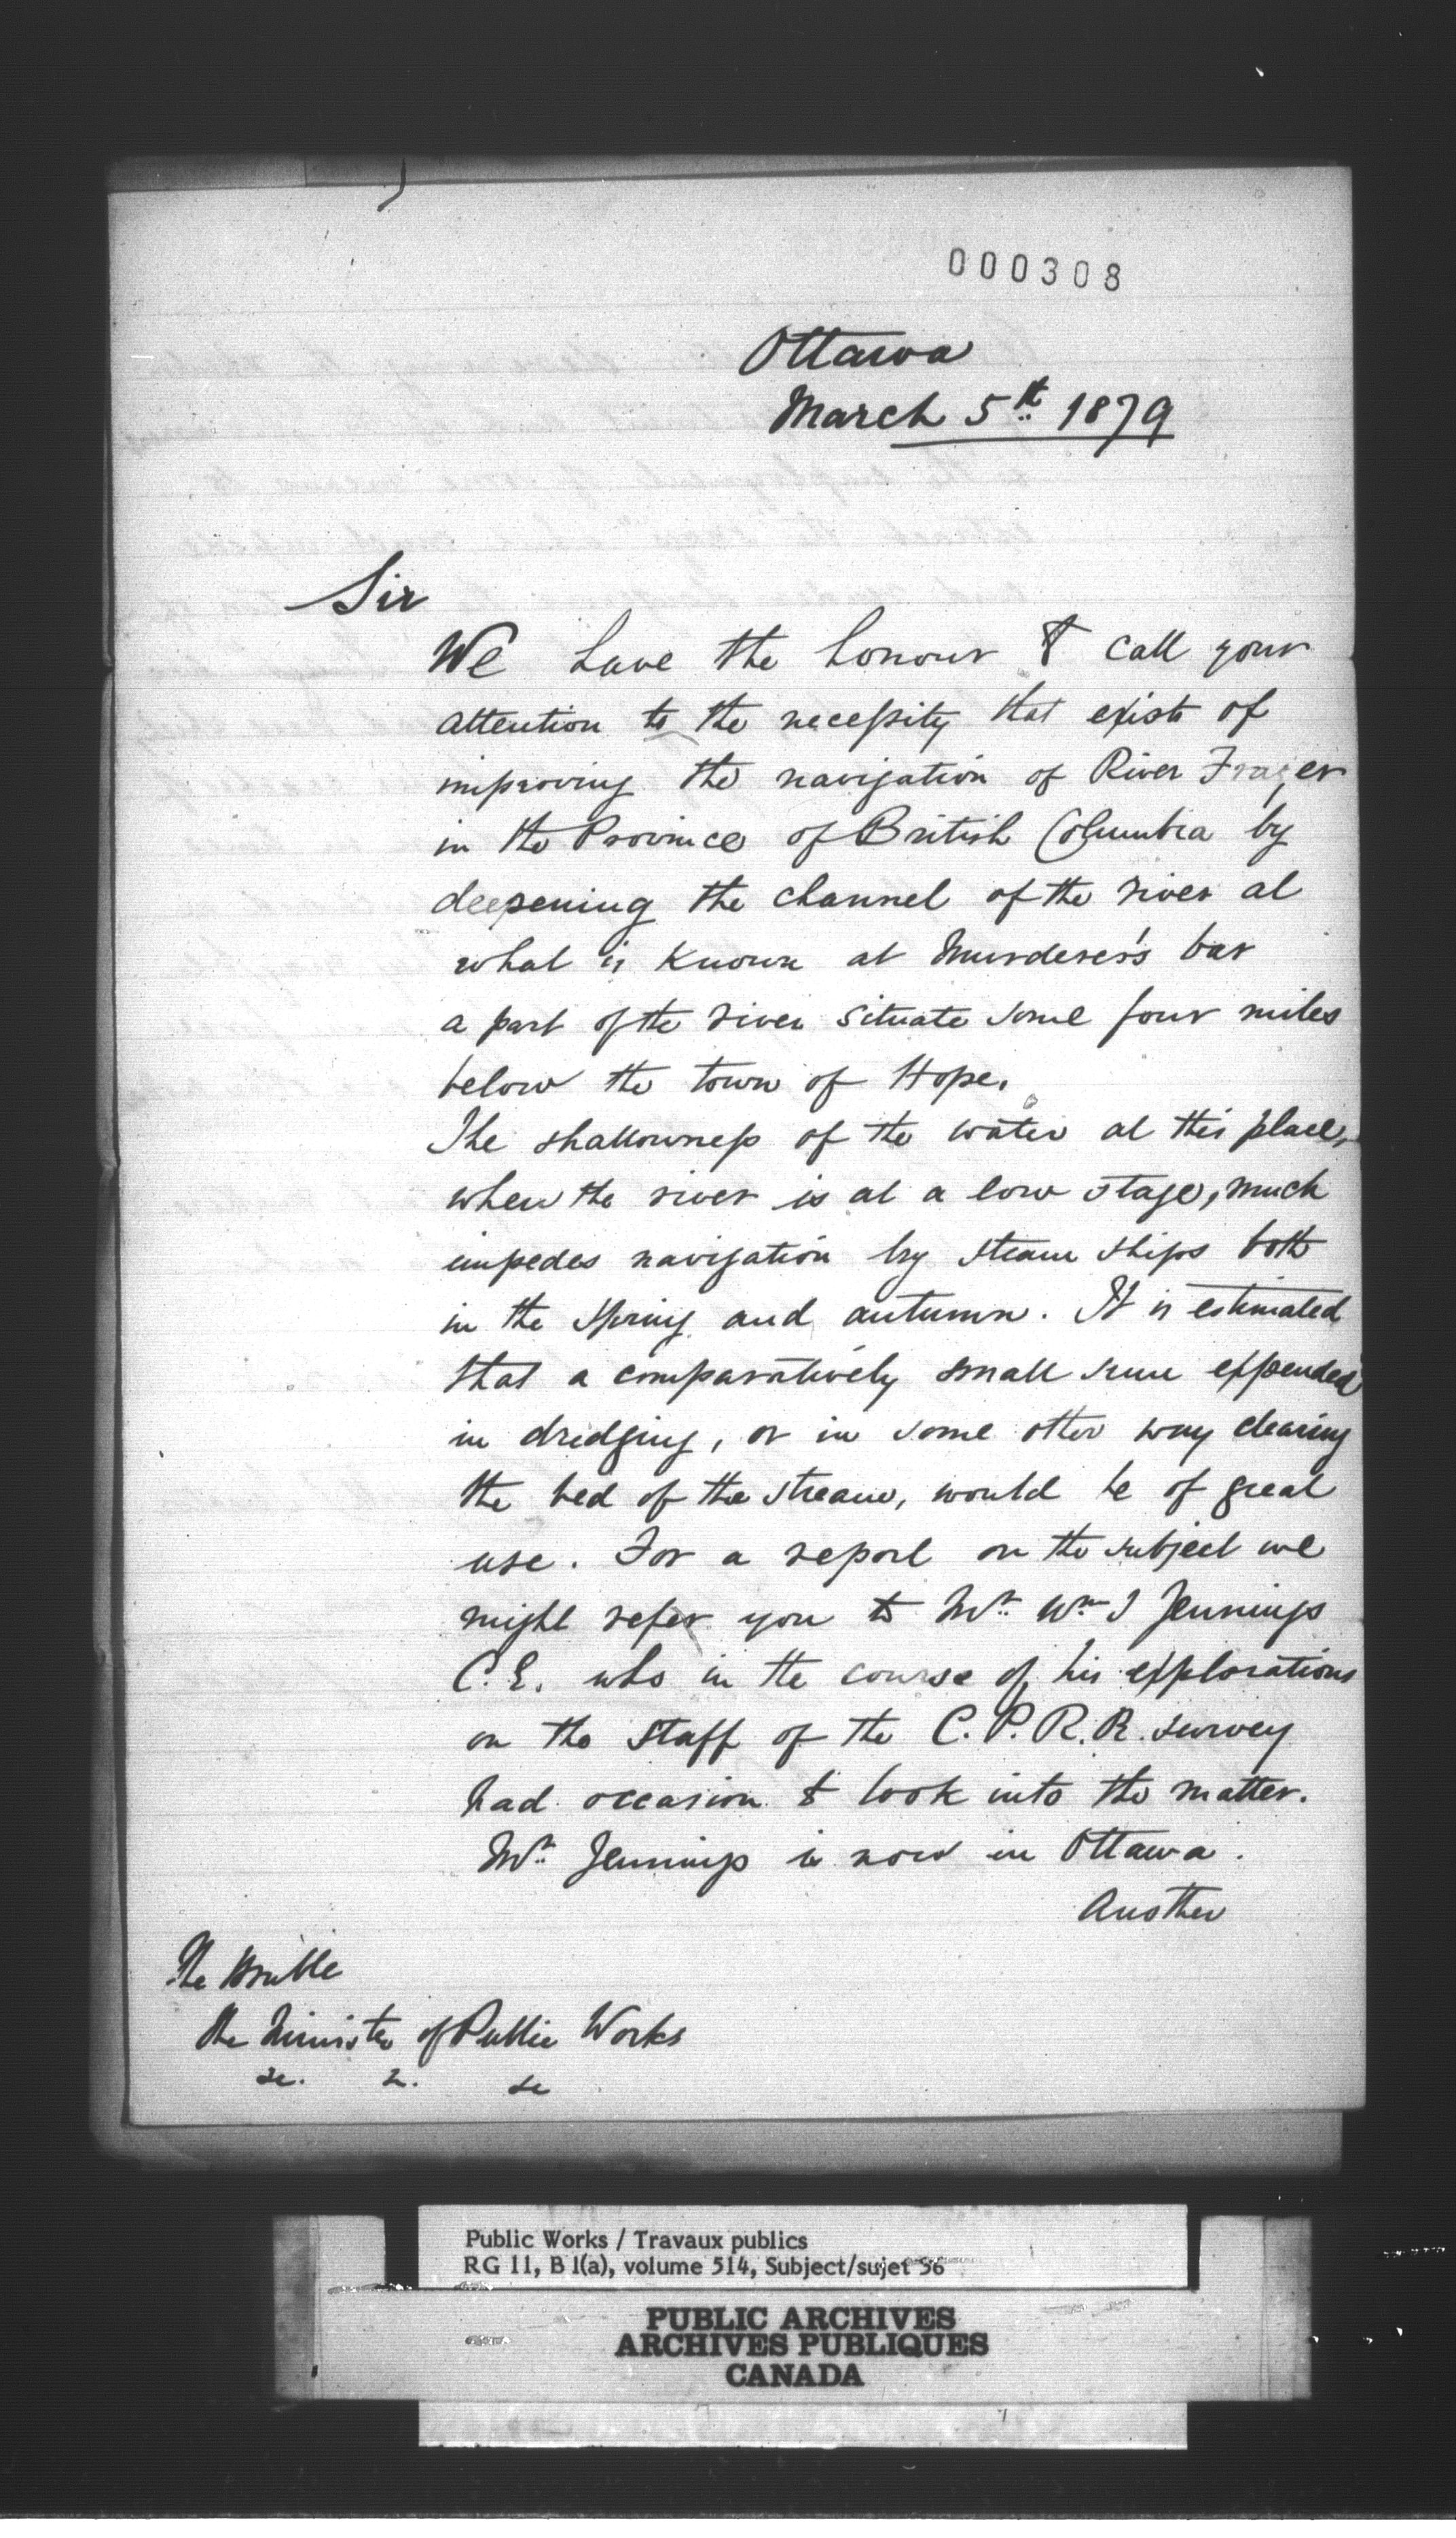 000308
Ottawa
March 5th 1879
Sir
We have the honour to call your
attention to the necessity that exists of
improving the navigation of River Frazer
in the Province of British Columbia by
deepening the channel of the river at
what is known at Murderer's bar
a part of the river situate some four miles
below the town of Hope.
The shallowness of the water at this place,
when the river is at a low stage, much
impedes navigation by steam ships both
in the spring and autumn. It is estimated
that a comparatively small sum expended
in dredging, or in some other way clearing
the bed of the stream, would be of great
use. For a report on the subject we
might refer you to Mr. Wm J Jennings
C.E. who in the course of his explorations
on the staff of the C.P.R.R. survey
had occasion to look into the matter.
Mr. Jennings is now in Ottawa.
Another
The Honble
the Minister of Public Works
&c. &c. &c
Public Works / Travaux publics
RG 11, B 1(a), volume 514, Subject/sujet 56
PUBLIC ARCHIVES
ARCHIVES PUBLIQUES
CANADA